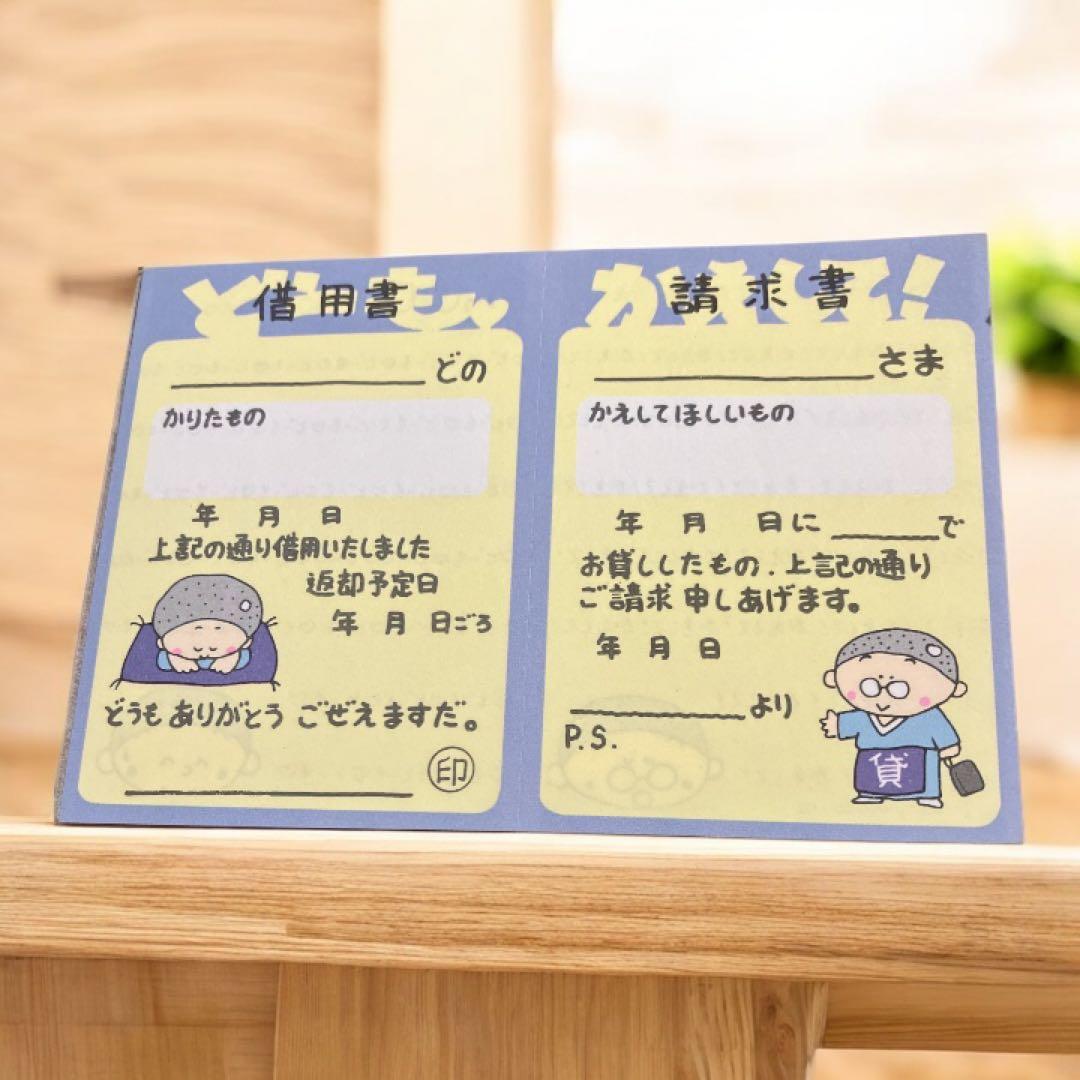 どーも
借用書
どの
かりたもの
年 月 日
上記の通り借用いたしました
返却予定日
年 月 日ごろ
どうもありがとう ごぜえますだ。
印
かえして!
請求書
さま
かえしてほしいもの
年 月 日に で
お貸ししたもの、上記の通り
ご請求申しあげます。
年 月 日
より
P.S.
貸